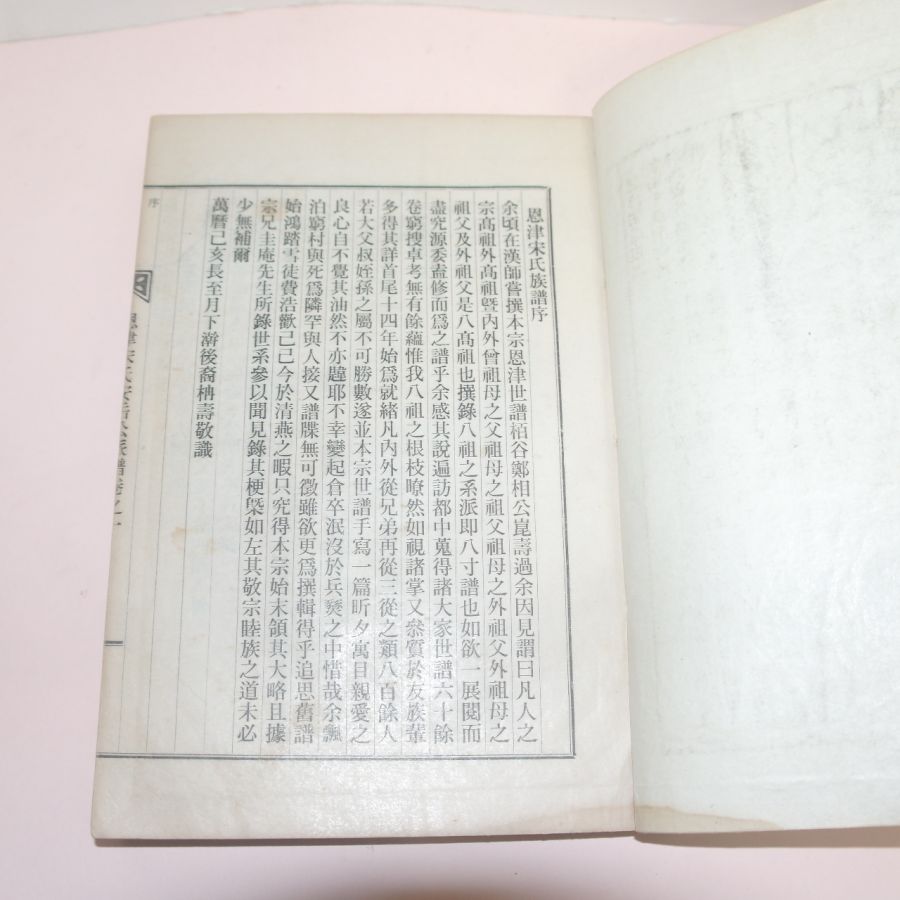 恩津宋氏族譜序
余頃在漢師嘗撰本宗恩津世譜栢谷鄭相公崑壽過余因見謂曰凡人之
宗高祖外高祖曁內外曾祖母之父祖母之祖父祖母之外祖父外祖母之
祖父及外祖父是八高祖也撰錄八祖之系派即八寸譜也如欲一展閱而
盡究源委盍修而爲之譜乎余感其說遍訪都中蒐得諸大家世譜六十餘
卷窮搜卓考無有餘蘊惟我八祖之根枝暸然如視諸掌又叅質於友族輩
多得其詳首尾十四年始爲就緖凡內外從兄弟再從三從之類八百餘人
若大父叔姪孫之屬不可勝數遂並本宗世譜手寫一篇昕夕寓目親愛之
良心自不覺其油然不亦韙耶不幸變起倉卒泯沒於兵燹之中惜哉余飄
泊窮村與死爲隣罕與人接又譜牒無可徵雖欲更爲撰輯得乎追思舊譜
始鴻踏雪徒費浩歎己已今於清燕之暇只究得本宗始末領其大略且據
宗兄圭庵先生所錄世系參以聞見錄其梗槩如左其敬宗睦族之道未必
少無補爾
萬曆己亥長至月下澣後裔柟壽敬識
序
恩津宋氏
派譜卷之一